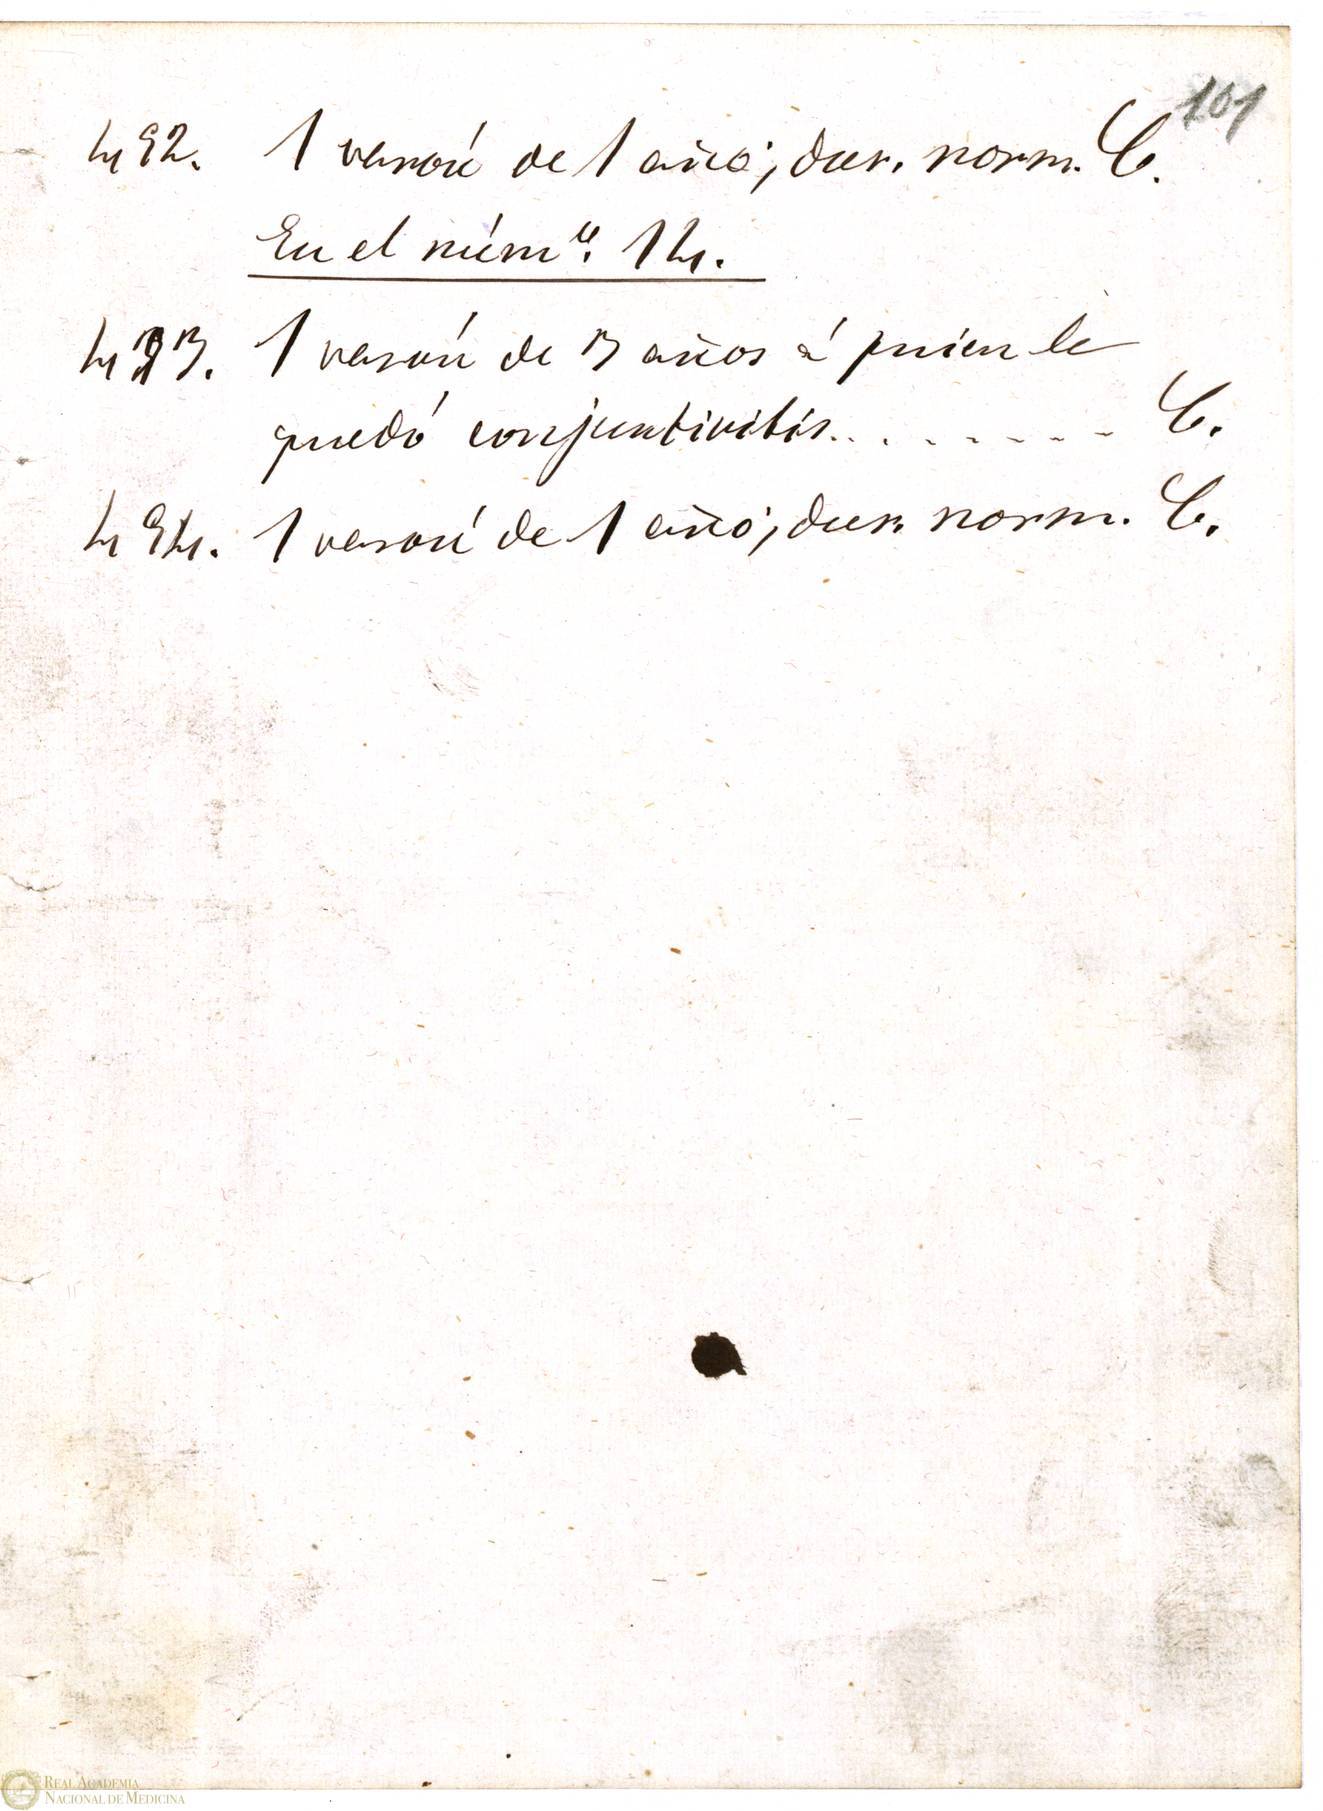 101
492. 1 varón de 1 año; dur. norm. C.
En el núm.º 14.
493. 1 varón de 3 años á quien le
quedó conjuntivitis. . . . . . . . . C.
494. 1 varón de 1 año; dur. norm. C.
REAL ACADEMIA
NACIONAL DE MEDICINA